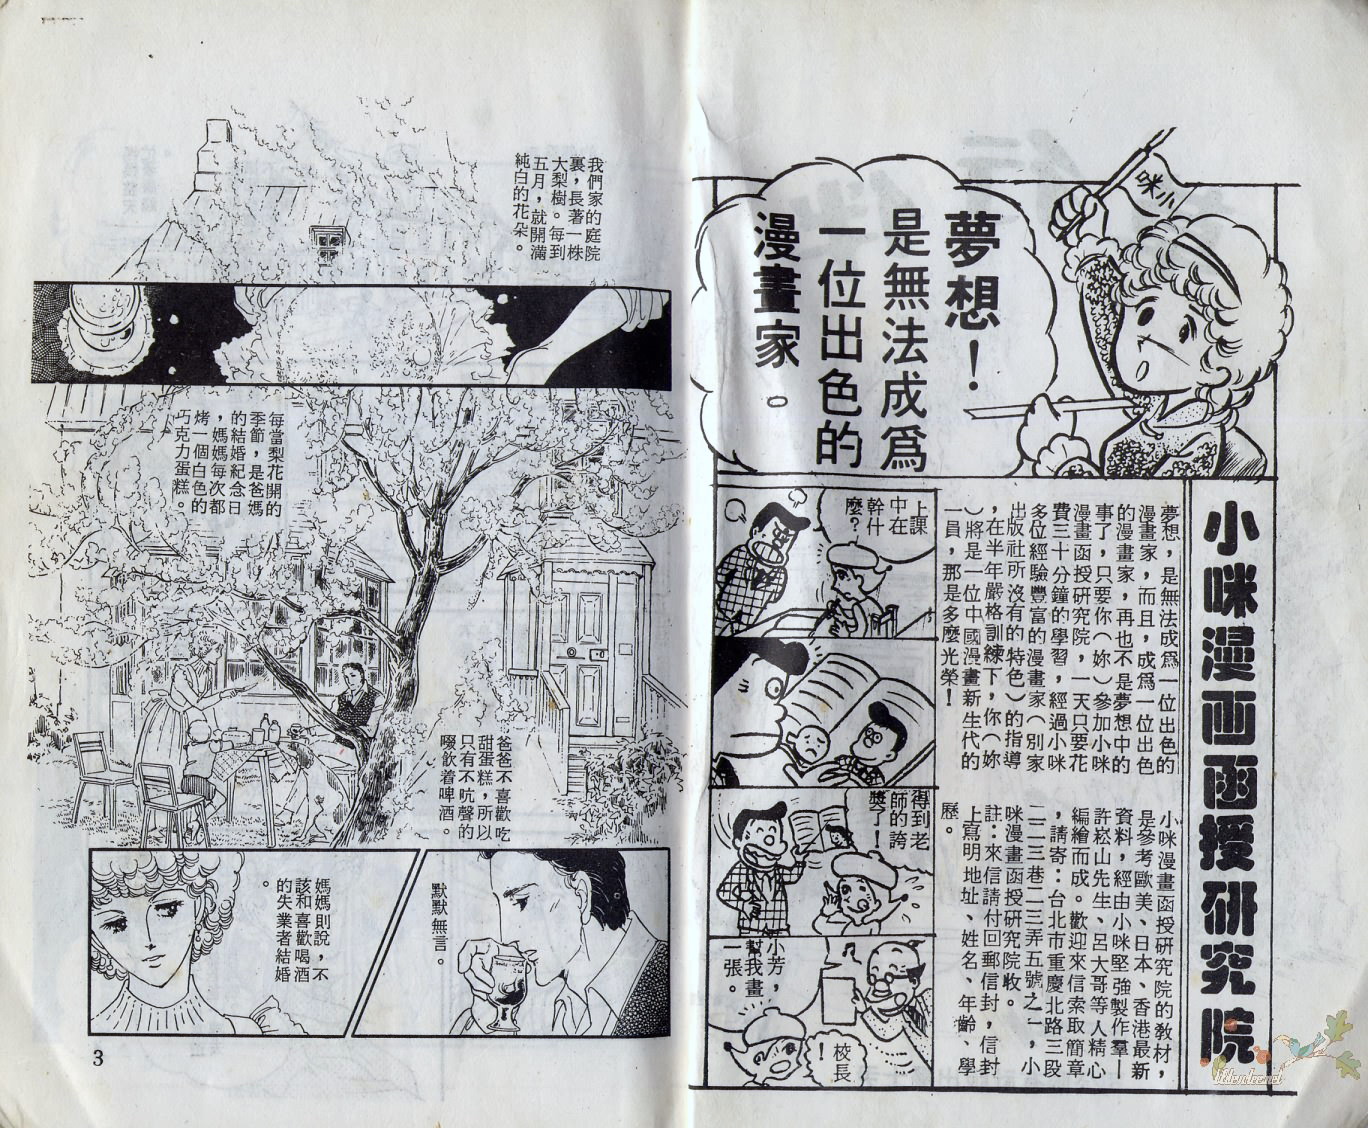 小咪
夢想！
是無法成為
一位出色的
漫畫家。
小咪漫画函授研究院
夢想，是無法成為一位出色的
漫畫家，而且，成為一位出色
的漫畫家，再也不是夢想中的
事了，只要你（妳）參加小咪
漫畫函授研究院，一天只要花
費三十分鐘的學習，經過小咪
多位經驗豐富的漫畫家（別家
出版社所沒有的特色）的指導
，在半年嚴格訓練下，你（妳
）將是一位中國漫畫新生代的
一員，那是多麼光榮！
小咪漫畫函授研究院的教材，
是參考歐美、日本、香港最新
資料，經由小咪堅強製作羣—
許崧山先生、呂大哥等人精心
編繪而成。歡迎來信索取簡章
，請寄：台北市重慶北路三段
二二三巷二三弄五號之一，小
咪漫畫函授研究院收。
註：來信請付回郵信封，信封
上寫明地址、姓名、年齡、學
歷。
上課
中在
幹什
麼？
得到老
師的誇
獎了！
小芳，
幫我畫
一張。
校長
！
我們家的庭院
裏，長著一株
大梨樹。每到
五月，就開滿
純白的花朵。
每當梨花開的
季節，是爸媽
的結婚紀念日
，媽媽每次都
烤一個白色的
巧克力蛋糕。
爸爸不喜歡吃
甜蛋糕，所以
只有不吭聲的
啜飲着啤酒。
默默無言。
媽媽則說，不
該和喜歡喝酒
的失業者結婚
。
3